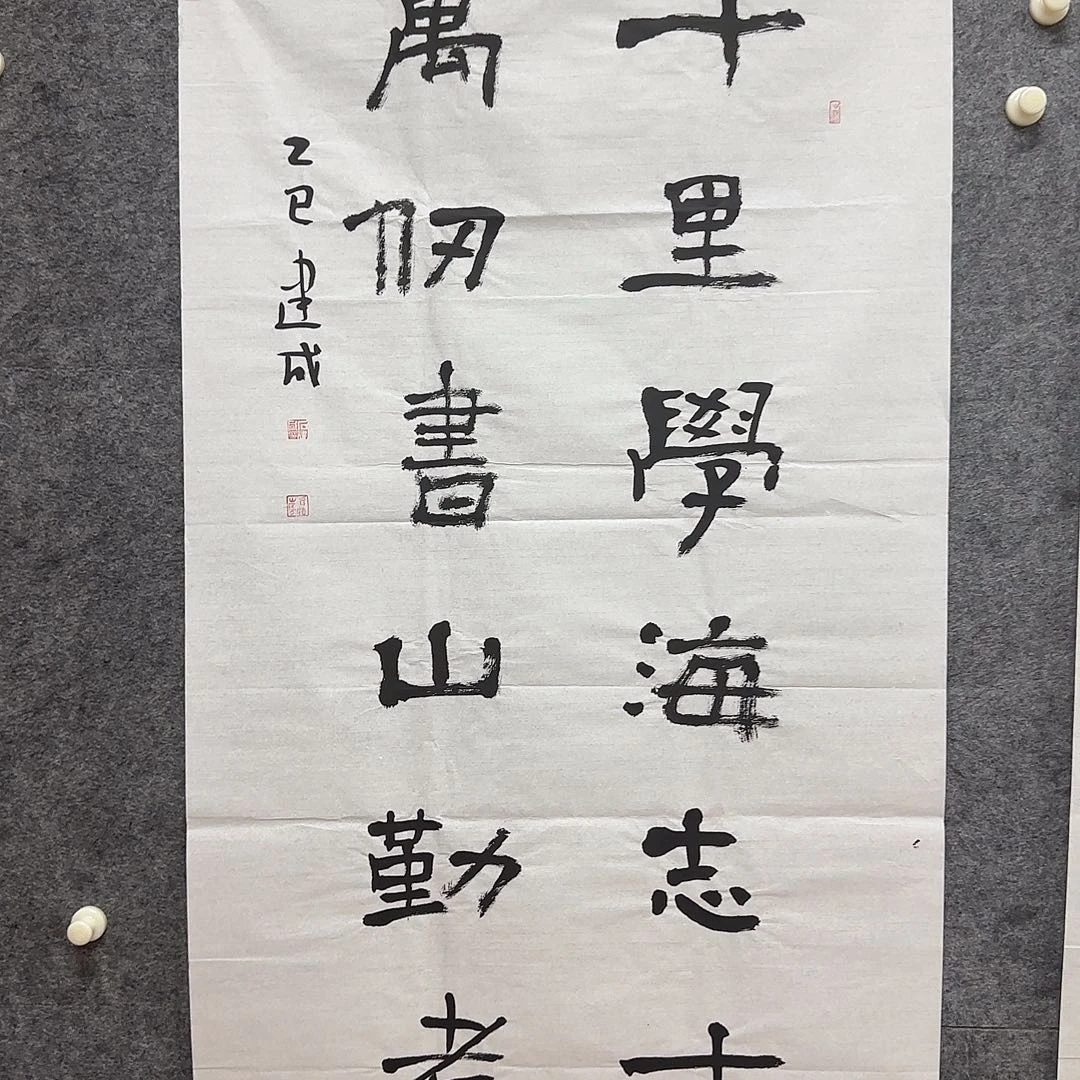 千里學海志
萬仞書山勤者
乙巳建成